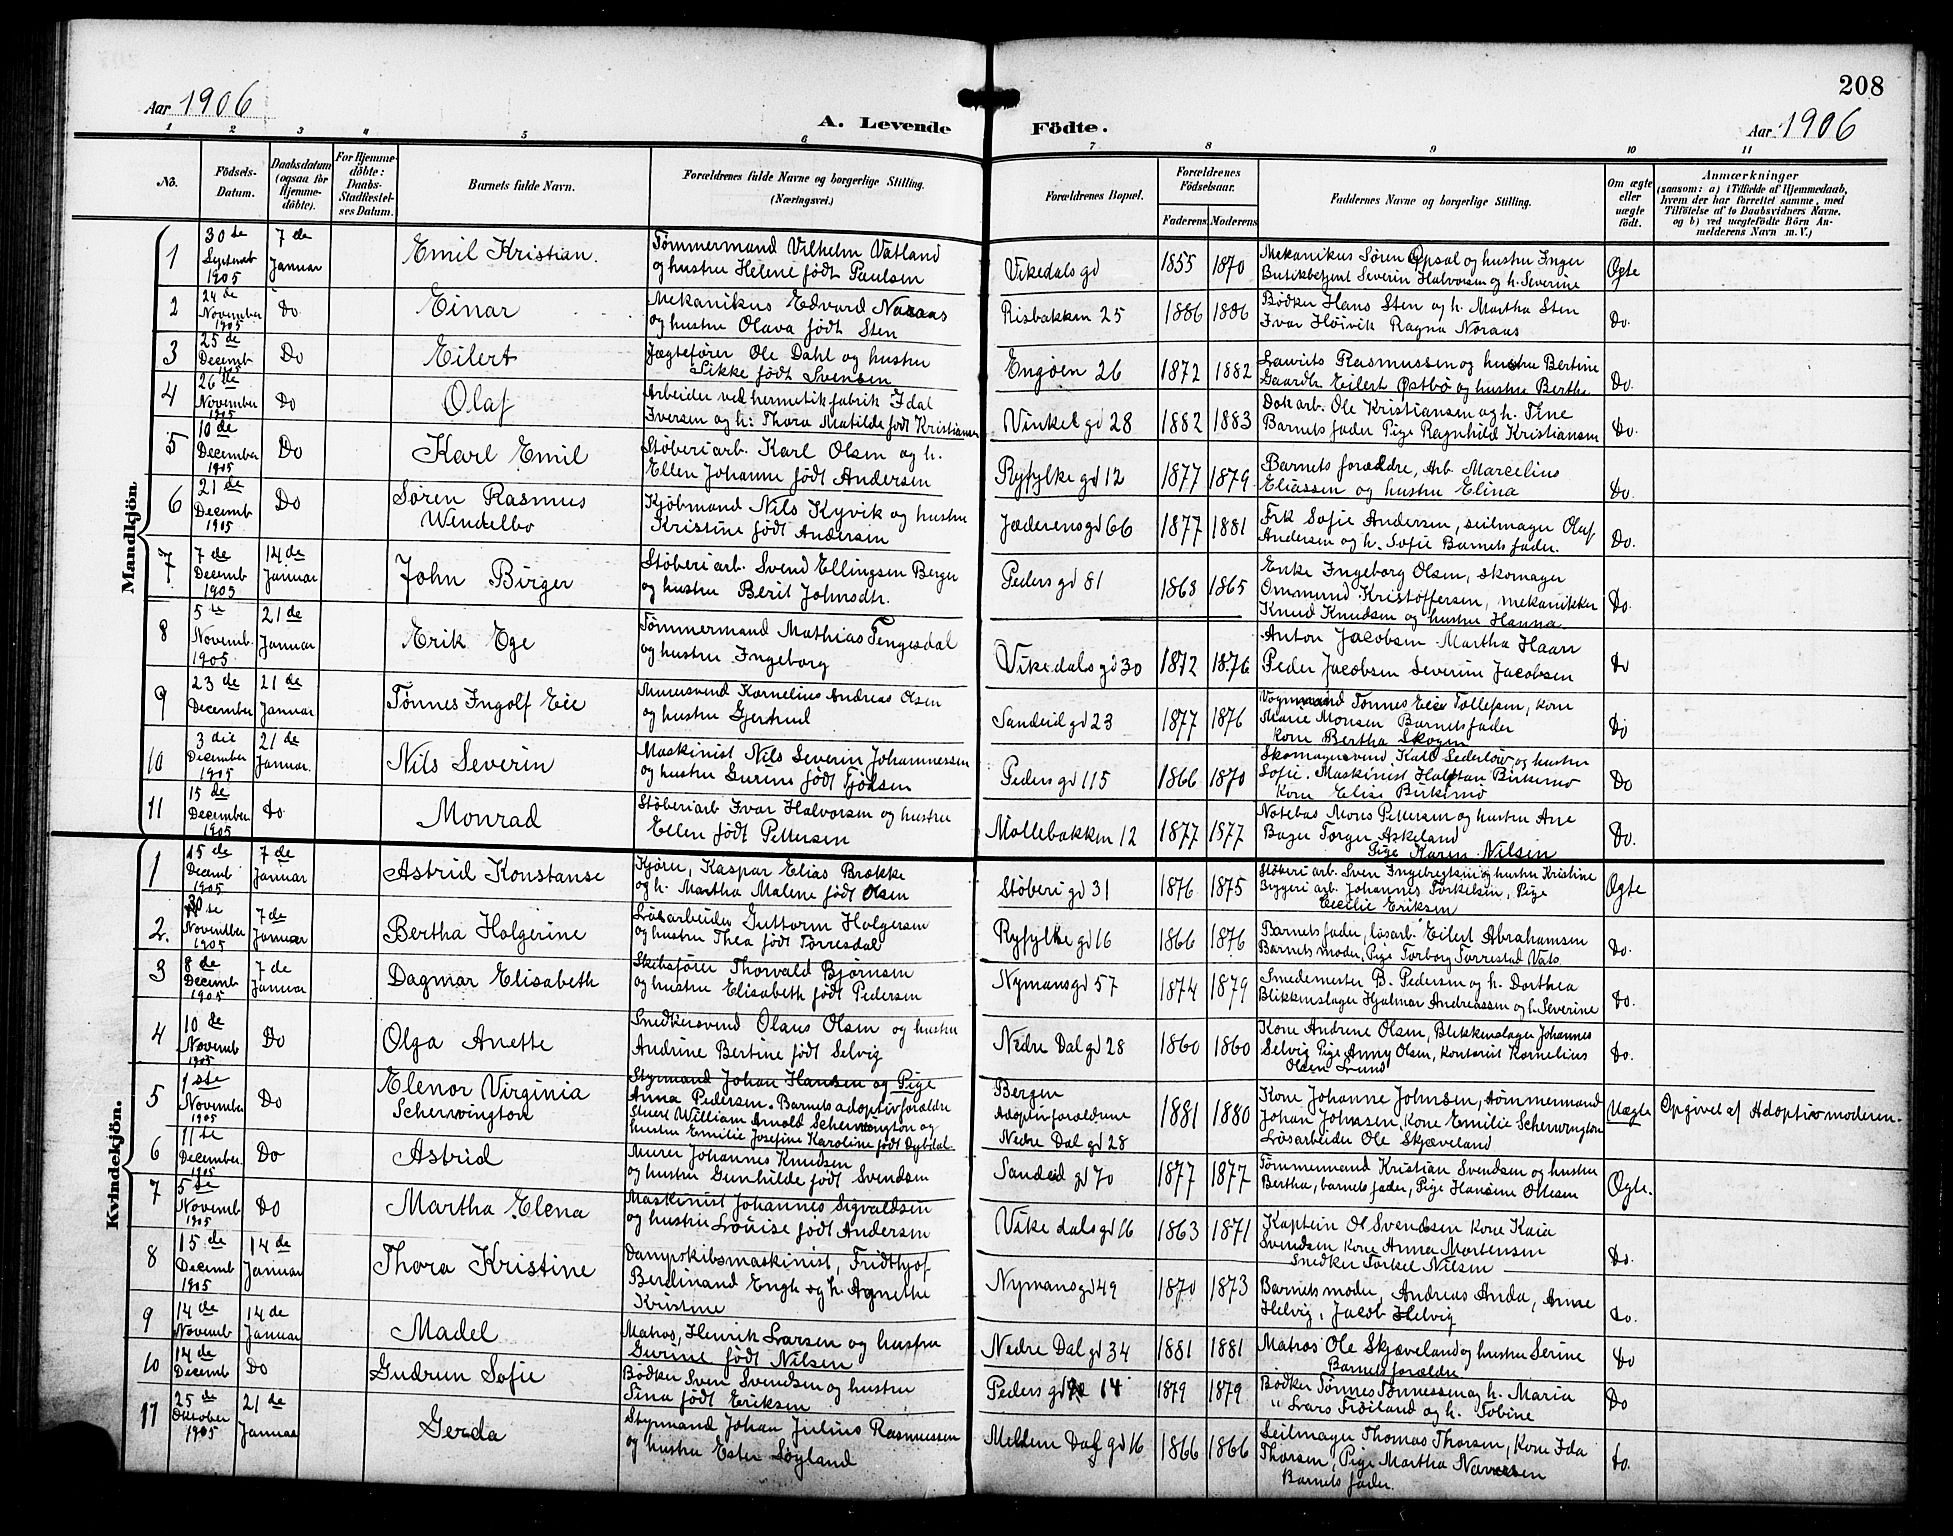 208
Aar 1906
A. Levende Födte.
Aar 1906
1 2 3 4 5 6 7 8 9 10 11
Nö.
Födsels-Datum.
Daabsdatum (ogsaa for Hjemme-döbte).
For Hjemme-döbte: Daabs-Stadfæstel-ses Datum.
Barnets fulde Navn.
Forældrenes fulde Navne og borgerlige Stilling. (Næringsvei.)
Forældrenes Bopæl.
Forældrenes Födselsaar.
Faderens Moderens
Faddernes Navne og borgerlige Stilling.
Om ægte eller uægte födt.
Anmærkninger
(saasom: a) i Tilfælde af Hjemmedaab,
hvem der har forrettet samme, med
Tilföielse af to Daabsvidners Navne.
og b) ved uægtefödte Börn An-
melderens Navn m. V.)
Mandkjön.
1 30 de Septemb 1905 7 de Januar Emil Kristian.
Tømmermand Vilhelm Vatland
og hustru Helene født Paulsen
Vikedals gd 1855 1870
Mekanikus Søren Opsal og hustru Inger
Butikbetjent Severin Halvorsen og h. Severine
Ægte
2 24 de November 1905 Do Einar
Mekanikus Edvard Noraas
og hustru Olava født Sten
Risbakken 25 1886 1886
Bødker Hans Sten og h. Martha Sten
Ivar Høivik Ragna Noraas
Do.
3 25 de Decemb 1905 Do Eilert
Jægtefører Ole Dahl og hustru
Sikke født Svensen
Engøen 26 1872 1882
Laurits Rasmussen og hustru Bertine
Gaardbr Eilert Østbø og hustru Berthe
Do.
4 26 de November 1905 Do Olaf
Arbeider ved hermetikfabrik Idal
Iversen og h: Thora Matilde født Kristiansen
Vinkel gd 28 1882 1883
Dokarb. Ole Kristiansen og h. Tine
Barnets fader Pige Ragnhild Kristiansen
Do.
5 10 de December 1905 Do Karl Emil
Støberiarb. Karl Olsen og h.
Ellen Johanne født Andersen
Ryfylke gd 12 1877 1879
Barnets forældre, Arb Marcelius
Eliassen og hustru Elina
Do.
6 21 de Decemb 1905 Do Søren Rasmus
Wendelbo
Kjøbmand Nils Kyvik og hustru
Kristine født Andersen
Jæderens gd 66 1877 1881
Frk Sofie Andersen, seilmager Olaf
Andersen og h. Sofie Barnets fader.
Do.
7 7 de Decemb 1905 14 de Januar John Birger
Støberiarb. Svend Ellingsen Berger
og hustru Berit Johnsdtr.
Peders gd 81 1863 1865
Enke Ingeborg Olsen, skomager
Ommund Kristoffersen, mekanikker
Knud Knudsen og hustru Hanna
Do.
8 5 te Novemb. 1905 21 de Januar Erik Ege
Tømmermand Mathias Tengesdal
og hustru Ingeborg
Vikedals gd 30 1872 1876
Anton Jacobsen Martha Haan
Peder Jacobsen Severine Jacobsen
Do
9 23 de December 21 de Januar Tønnes Ingolf Eie
Murersvend Kornelius Andreas Olsen
og hustru Gjertrud
Sandeid gd 23 1877 1876
Vognmand Tønnes Eie Tollefsen, kone
Marie Monsen Barnets fader
Kone Bertha Skogen
Do
10 3 die December 1905 21 de Januar. Nils Severin
Maskinist Nils Severin Johannessen
og hustru Gurene født Tjødsen
Peders gd 115 1866 1870
Skomagersvend Karl Cederløv og hustru
Sofie. Maskinist Halftan Birkemo
Kone Elise Birkemo
Do
11 15 de December 1905 Do Monrad
Støberiarb Ivar Halvorsen og hustru
Ellen født Pettersen
Møllebakken 12 1877 1877
Notebas Mons Pettersen og hustru Ane
Bager Torger Askeland
Pige Karen Nilsen
Do.
Kvindekjön.
1 15 de Decemb 1905 7 de Januar Astrid Konstanse
Kjøren, Kaspar Elias Brække
og h. Martha Malene født Olsen
Støberi gd 31 1876 1875
Støberi arb. Sven Ingebregtsen og hustru Kristine
Bryggeri arb. Johannes Torkelsen, Pige
Cecilie Eriksen
Ægte
2. 30 te November 1905 7 de Januar Bertha Holgerine
Løsarbeider Guttorm Holgersen
og hustru Thea født Torresdal
Ryfylke gd 16 1866 1876
Barnets fader, løsarb. Eilert Abrahamsen
Barnets moder, Pige Torborg Torrestad Vats.
Do.
3 8 de Decemb 1905 7 de Januar Dagmar Elisabeth
Skibsfører Thorvald Bjørnsen
og hustru Elisabeth født Pedersen
Nymansgd 57 1874 1879
Smedemester B. Pedersen og h. Dorthea
Blikkenslager Hjalmar Andreassen og h. Severine
Do.
4 10 de Novemb 1905 Do Olga Anette
Snedkersvend Olaus Olsen og hustru
Andrine Bertine født Selvig
Nedre Dal gd 28 1860 1860
Kone Andrine Olsen, Blikkenslager Johannes
Selvig Pige Anny Olsen, Kontorist Kornelius
Olsen Lund
Do.
5 1 ste November 1905 Do Elenor Virginia
Scherwington
Styrmand Johan Hansen og Pige
Anna Pedersen. Barnets adoptivforældre
Stuert William Arnold Scherwington og
hustru Emilie Josefine Karoline født Dybdal
Bergen
Adoptivforældrene
Nedre Dal gd 28 1881 1880
Kone Johanne Johnsen, tømmermand
Johan Johnsen, Kone Emilie Scherwington
Løsarbeider Ole Skjæveland
Uægte Opgivet af Adoptivmoderen.
6 11 te December. 1905 Do Astrid
Murer Johannes Knudsen
og hustru Gunhilde født Svendsen
Sandeid gd 70 1877 1877
Tømmermand Kristian Svendsen og hustru
Bertha, barnets fader, Pige Hansine Ottesen
Ægte.
7 5 te Novemb 1905 Do Martha Elena
Maskinist Johannes Sigvaldsen
og hustru Louise født Andersen
Vikedals gd 16 1863 1871
Kaptein Ol Svendsen Kone Kaia
Svendsen Kone Anna Mortensen
Snedker Torkel Nilsen
Do.
8 15 de Decemb 1905 14 de Januar Thora Kristine
Dampskibsmaskinist, Fridthjof
Berdinand Engh og h. Agnethe
Kristine
Nymansgd 49 1870 1873
Barnets moder, Andreas Anda, Anne
Helvig, Jacob Helvig
Do.
9 14 de Novemb 14 de Januar Madel
Matros, Henrik Larsen og hustru
Gurine født Nilsen
Nedre Dal gd 34 1881 1881
Matros Ole Skjæveland og hustru Serine
Barnets forældre
Do
10 14 de Decemb Do Gudrun Sofie
Bødker Sven Svendsen og hustru
Sina født Eriksen
Peders gd 14 1879 1879
Bødker Tønnes Tønnessen og h. Maria
" Lars Frøiland og h. Tobine
Do
11 25 de Oktober 1905 21 de Januar Gerda
Styrmand Johan Julius Rasmussen
og hustru Ester Søyland
Mellem Dal gd 16 1866 1866
Seilmager Thomas Thorsen, Kone Ida
Thorsen, Pige Martha Naversen
Barnets fader.
Do.